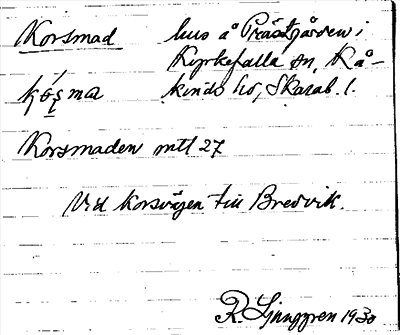 Korsmad hus å Prästgården i
Kyrkefalla sn, Kå-
kinds hd, Skarab. l.
Korsmaden mtl 27
Vid korsvägen till Bredvik.
R. Ljunggren 1930